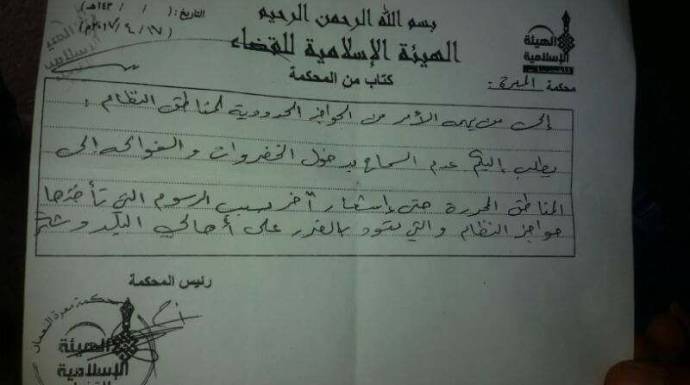 بسم الله الرحمن الرحيم
الهيئة الإسلامية للقضاء
كتاب من المحكمة
التاريخ: ( / / ١٤٣هـ)
(١٧ / ٤ / ٢٠١٧م)
الهيئة
الإسلامية
للقضاء
محكمة :
إلى من يهمه الأمر من الحواجز الحدودية لمناطق النظام :
يطلب إليكم عدم السماح بدخول الخضروات والفواكه إلى
المناطق المحررة حتى إشعار آخر بسبب الرسوم التي تأخذها
حواجز النظام والتي تعود بالضرر على أهالي البلد و
رئيس المحكمة
محكمة معرة النعمان
الهيئة
الإسلامية
للقضاء